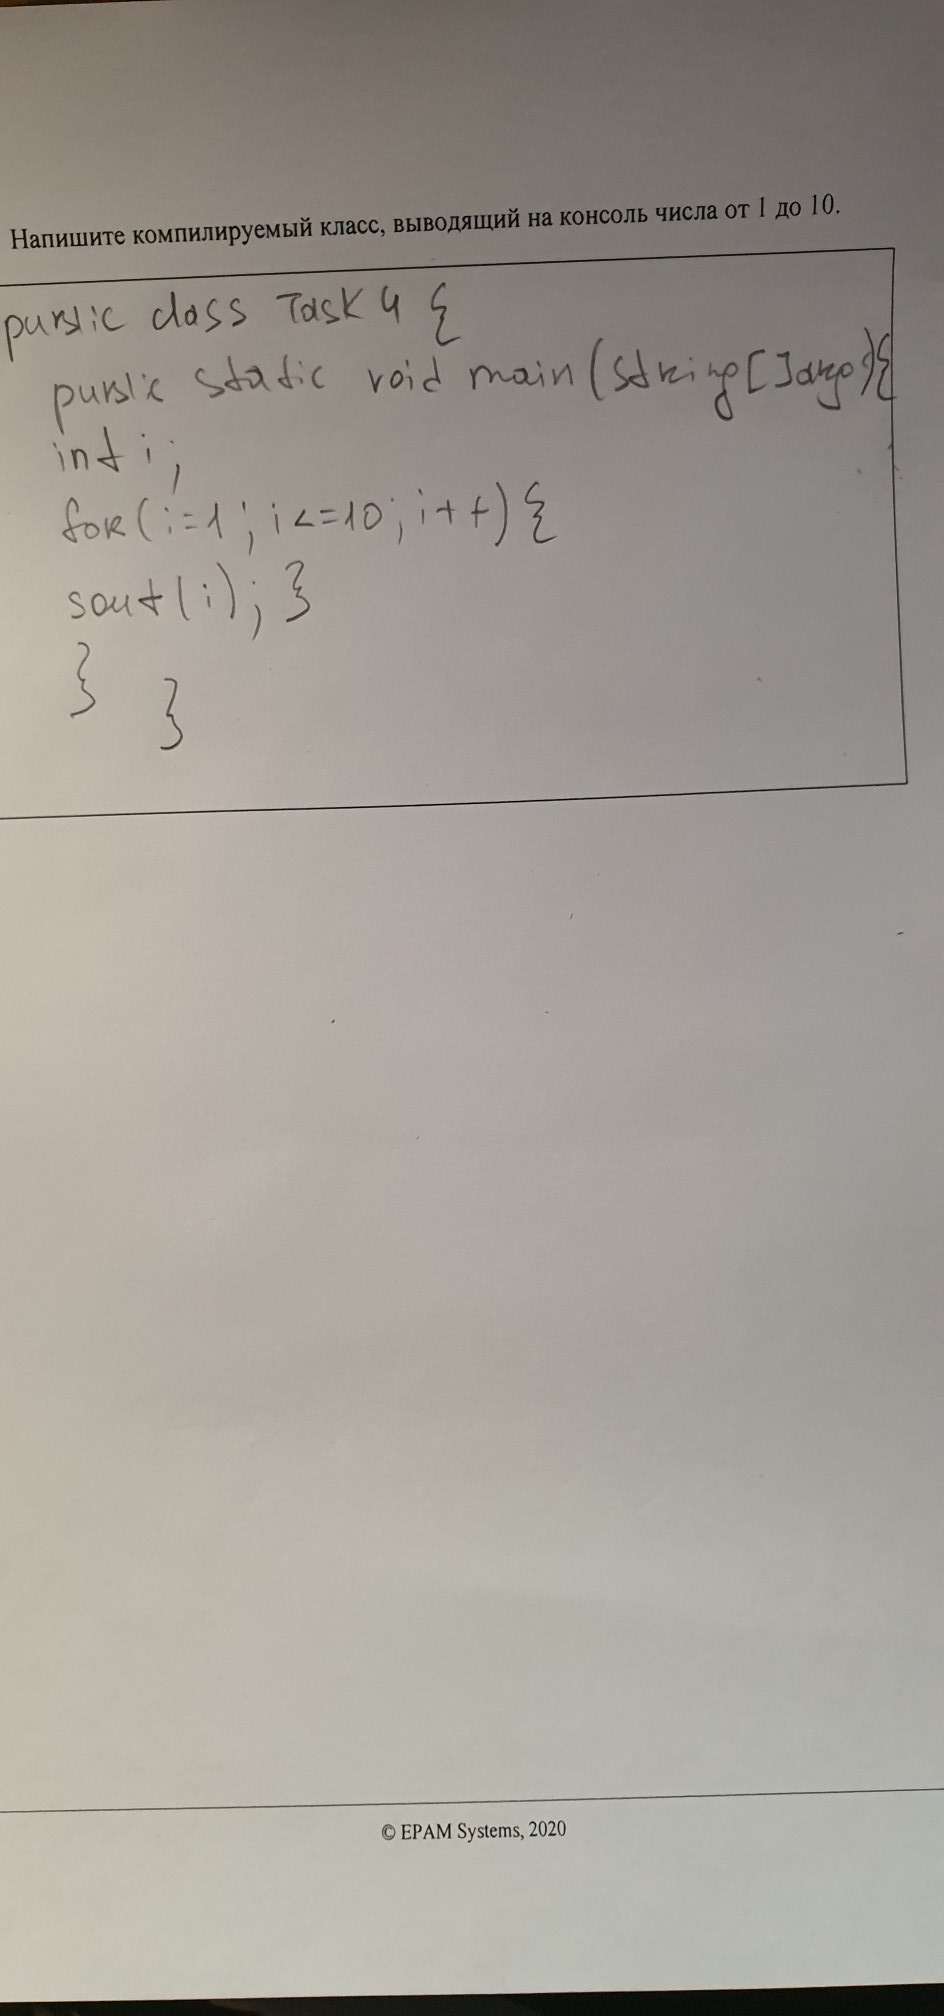 Напишите компилируемый класс, выводящий на консоль числа от 1 до 10.
public class Task 4 {
public static void main (String[] args) {
int i;
for (i=1; i<=10; i++) {
sout(i); }
}
}
© EPAM Systems, 2020